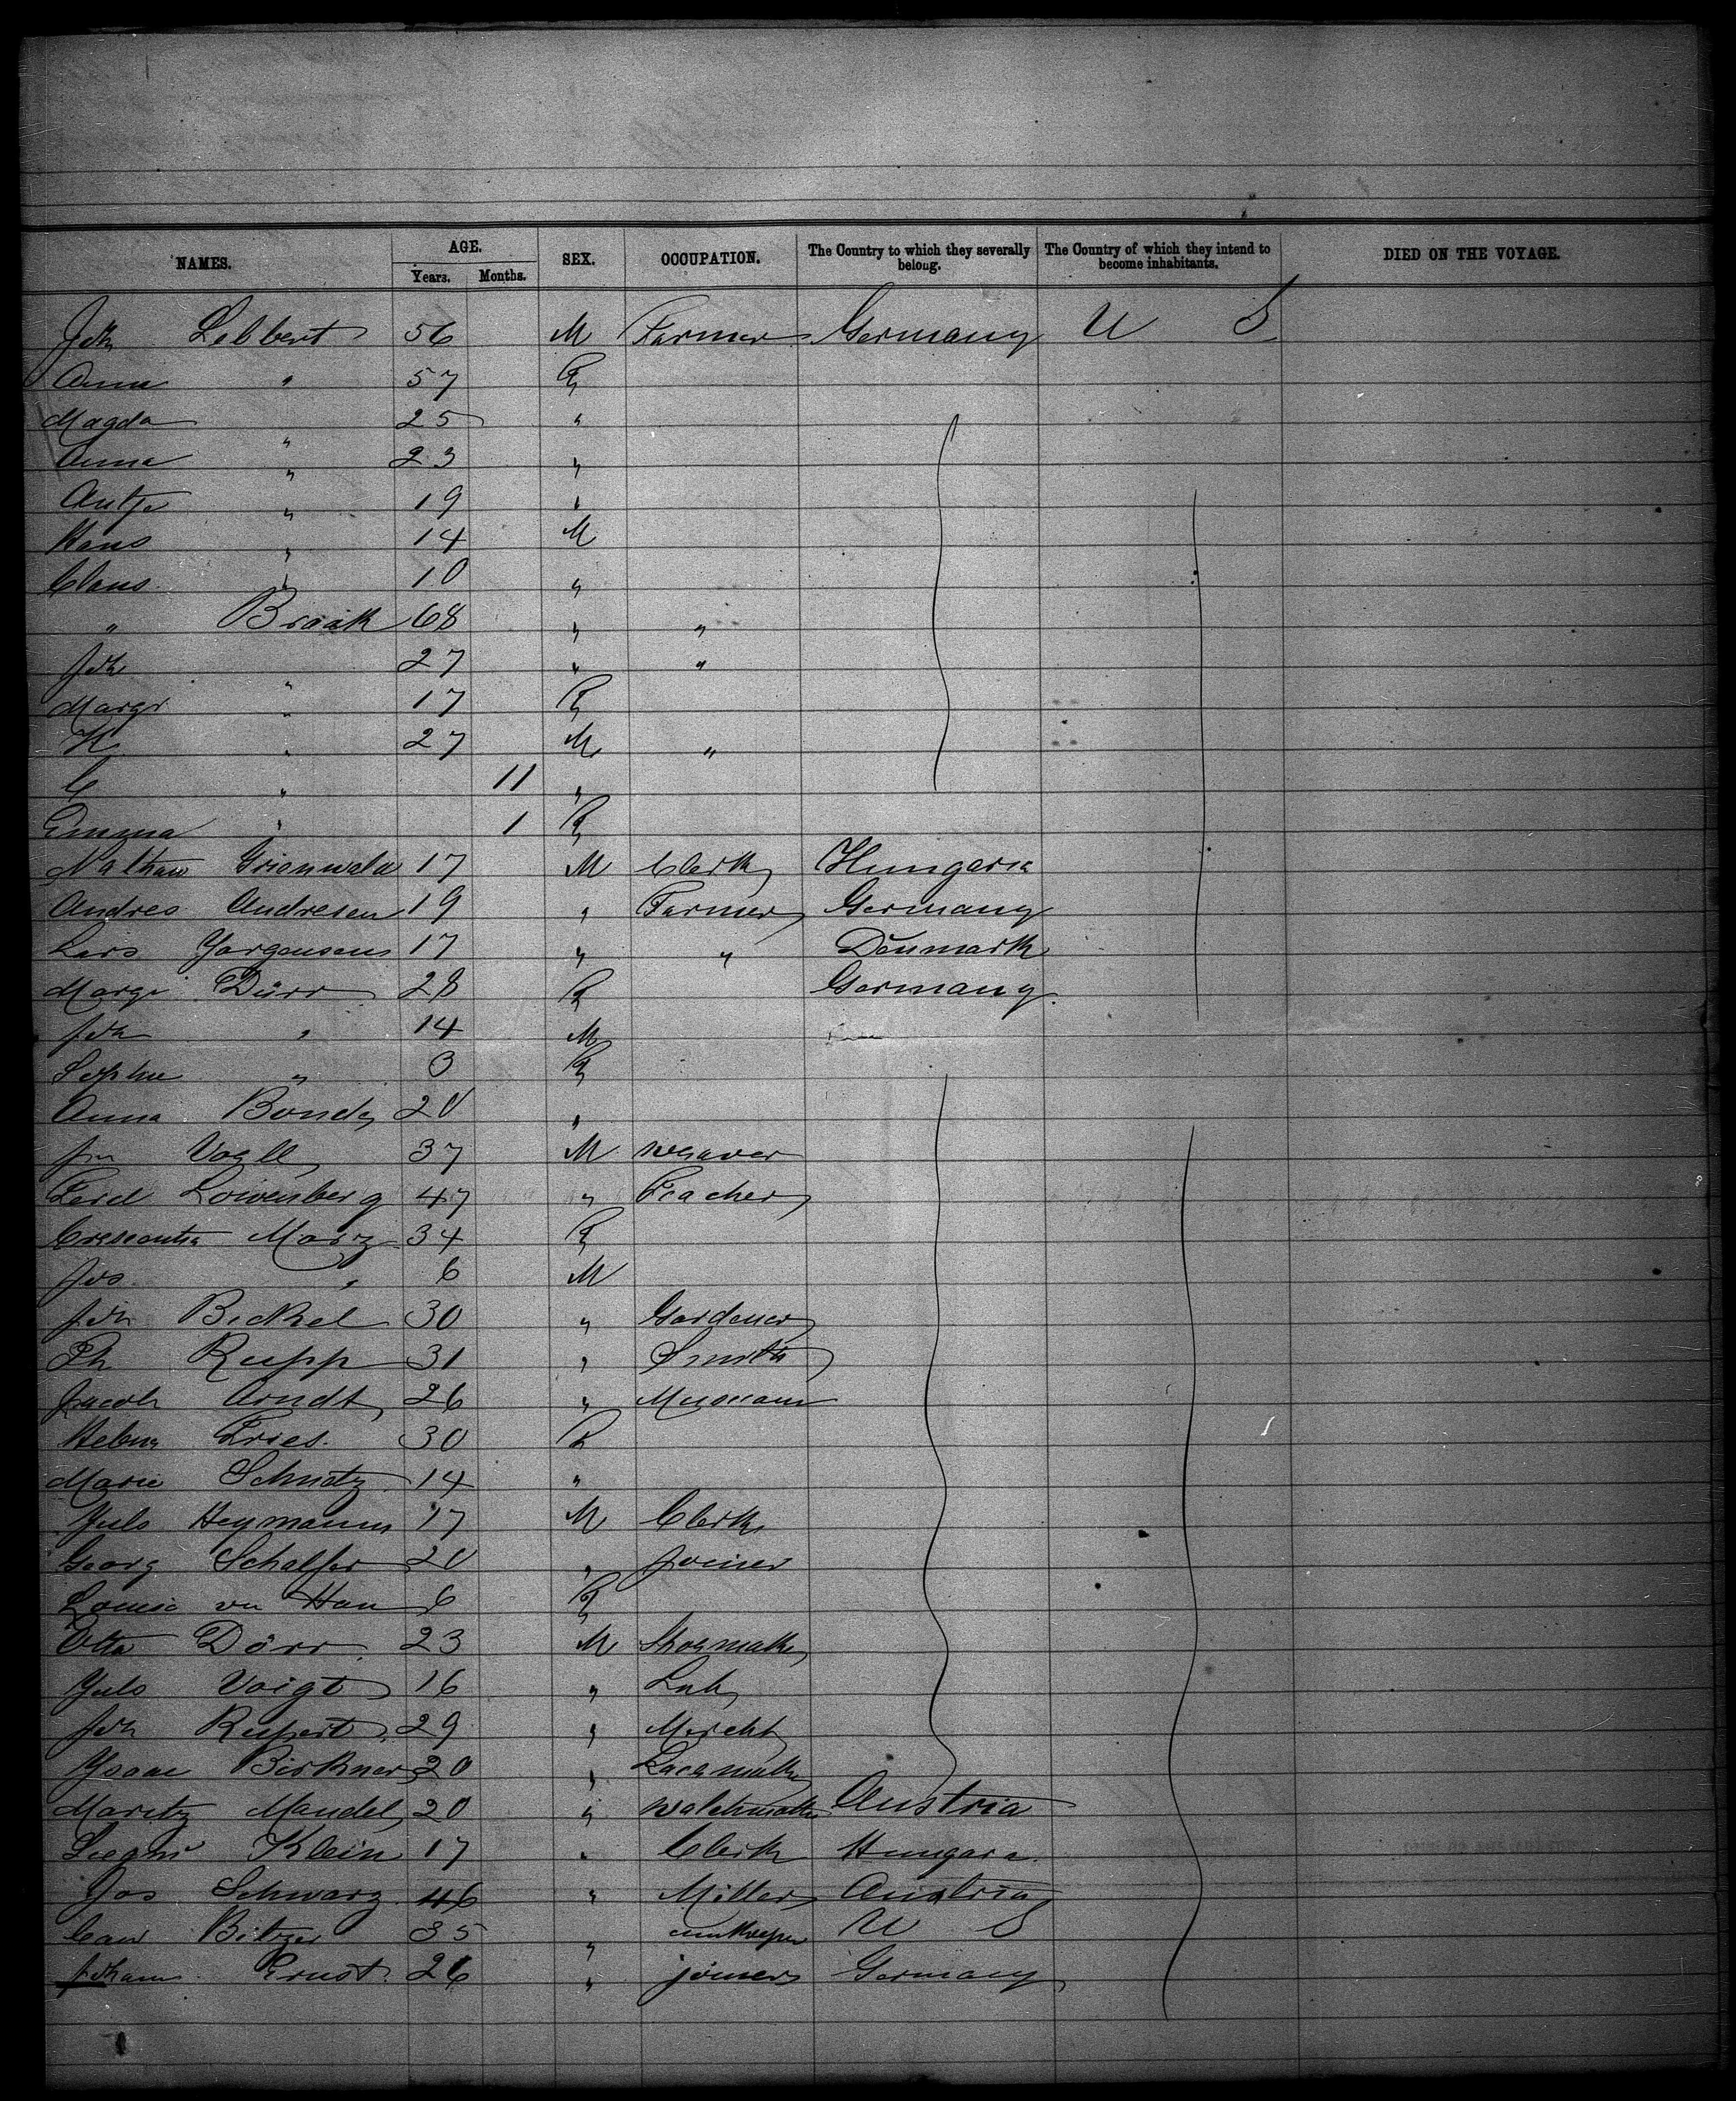 NAMES. AGE. SEX. OCCUPATION. The Country to which they severally belong. The Country of which they intend to become inhabitants. DIED ON THE VOYAGE.
Years. Months.
Joh Lebbert 56 M Farmer Germany U S
Anna " 57 F
Magda " 25 "
Anna " 23 "
Antje " 19 "
Hans " 14 M
Claus " 10 "
" Braak 68 " "
Joh " 27 " "
Margr " 17 F
H " 27 M "
C " 11 "
Emma " 1 F
Nathan Grienwald 17 M Clerk Hungaria
Andres Andresen 19 " Farmer Germany
Lars Jorgensens 17 " " Denmark
Margr Dürr 28 F Germany
Joh " 14 M
Sophie " 3 F
Anna Bondy 20 "
37 M weaver
Ferd Löwenberg 47 " Teacher
Crescentia Marz 34 F
Jos " 6 M
Joh Bickel 30 " Gardener
Ph Rupp 31 " Smith
Jacob Arndt 26 " Musician
Helena Fries. 30 F
Marie Schmatz 14 "
Juls Heymanns 17 M Clerk
Georg Schaffer 20 " joiner
Louise vn Han 6 F
Otto Dörr 23 M Shoemaker
Juls Voigt 16 " Lab
Joh Rupert 29 " Mercht
Isaac Birkner 20 "
Moritz Mandel 20 " Watchmaker Austria
Klein 17 " Clerk Hungaria
Jos Schwarz 46 " Miller Austria
Bitzer 35 " U S
Johann Ernst. 26 " joiner Germany